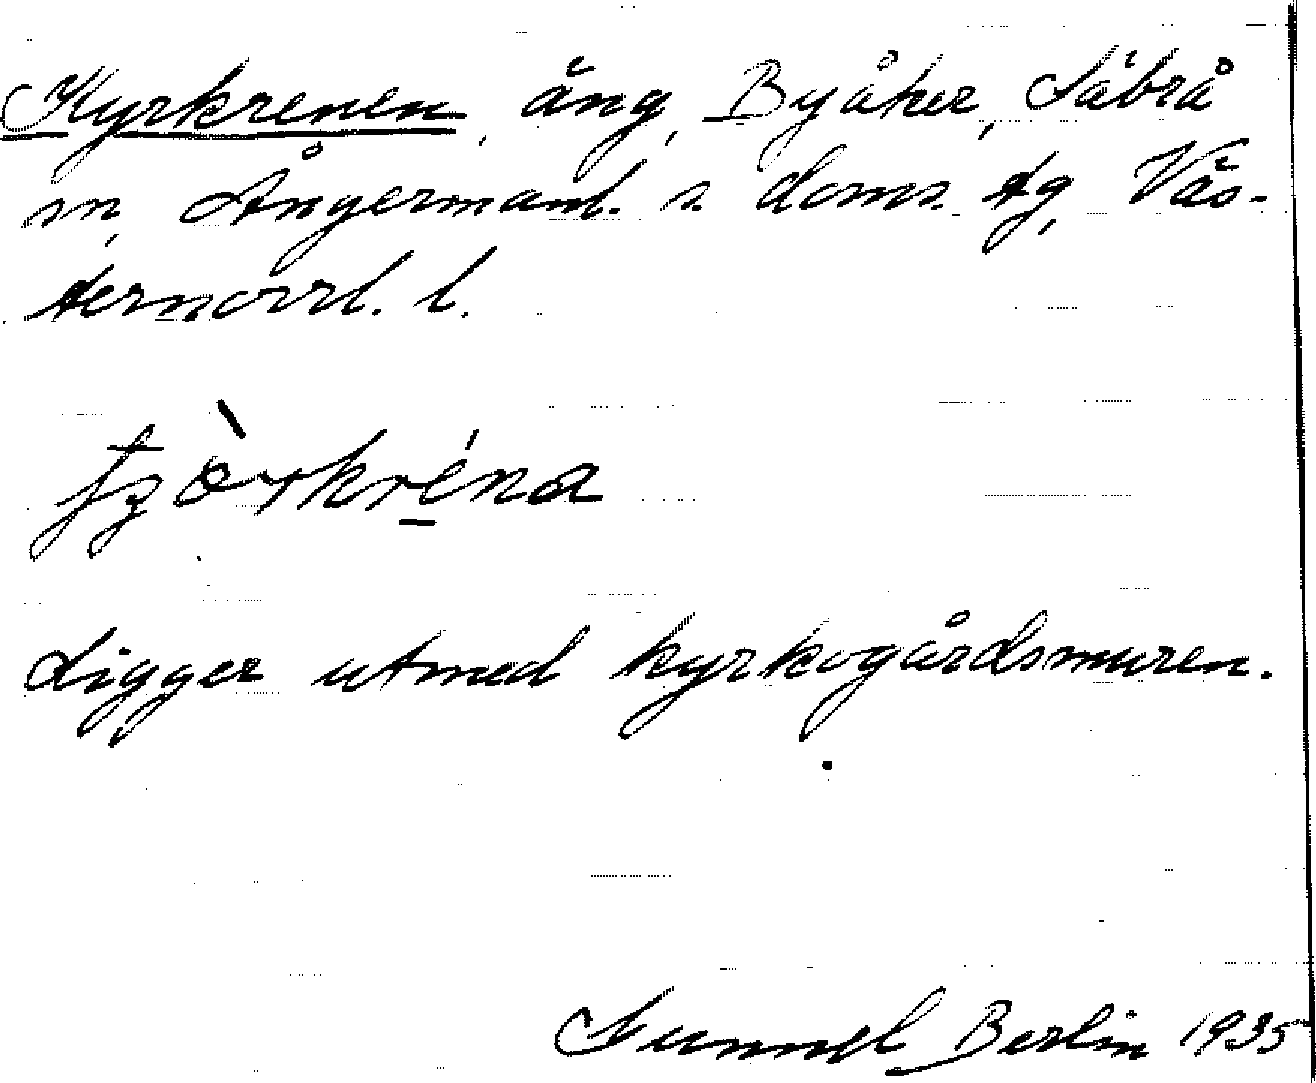 Kyrkrenen, äng, Byåker, Säbrå
sn, Ångermanl. s. doms. tg, Väs-
ternorrl. l.
Ligger utmed kyrkogårdsmuren.
Gunnel Berlin 1935